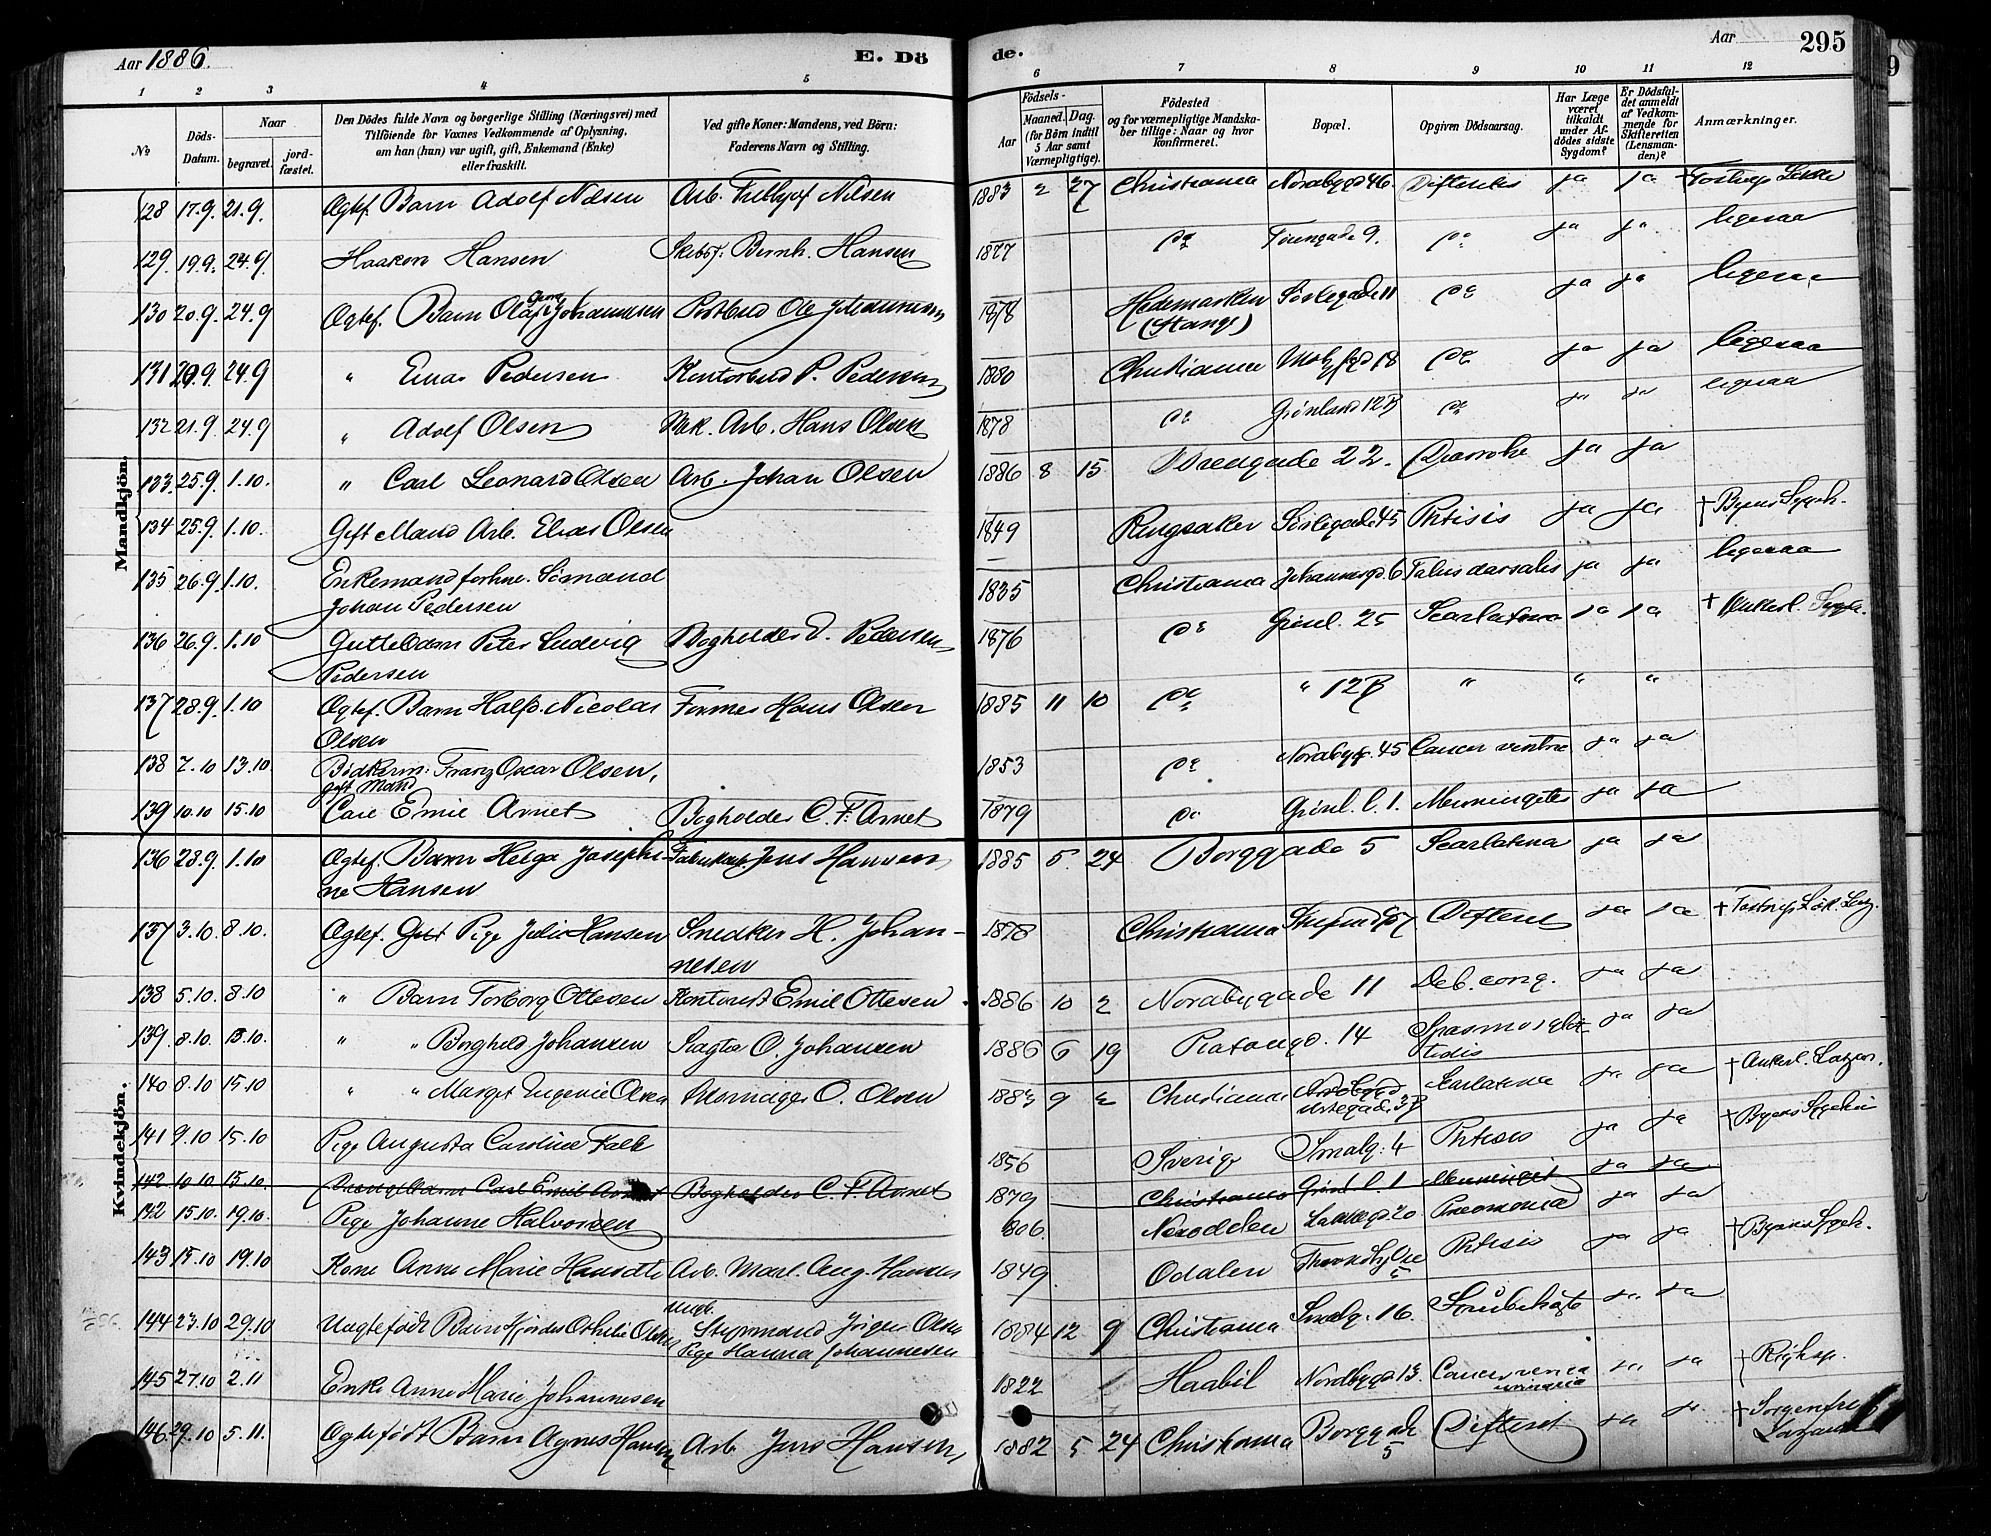 Aar 1886.
E. Dö
de.
Aar
295
1 2 3 4 5 6 7 8 9 10 11 12
№
Döds-Datum.
Naar
begravet.
jord-fæstet.
Den Dödes fulde Navn og borgerlige Stilling (Næringsvei) med
Tilföiende for Voxnes Vedkommende af Oplysning,
om han (hun) var ugift, gift, Enkemand (Enke)
eller fraskilt.
Ved gifte Koner: Mandens, ved Börn:
Faderens Navn og Stilling.
Födsels-
Aar
Maaned.
Dag.
(for Börn indtil
5 Aar samt
Værnepligtige).
Födested
og for værnepligtige Mandska-
ber tillige: Naar og hvor
konfirmeret.
Bopæl.
Opgiven Dödsaarsag.
Har Læge
været
tilkaldt
under Af-
dödes sidste
Sygdom?
Er Dödsfal-
det anmeldt
af Vedkom-
mende for
Skifteretten
(Lensman-
den)?
Anmærkninger.
Mandkjön.
128 17.9. 21.9. Ægtef. Barn Adolf Nilsen Arb. Nilsen 1883 2 27 Christiania Nordbygd 46 ja ja
129. 19.9. 24.9 Haakon Hansen Bernh. Hansen 1877 do 9. do ja ja ligesaa
130 20.9. 24.9 Ægtef. Barn Olaf Johannesen Postbud Ole 1878 Hedemarken (Stange) 11 do ja ja ligesaa
131 20.9. 24.9 " Einar Pedersen Kontorbud P. Pedersen 1880 Christiania 18 do ja ja ligesaa
132 21.9. 24.9 " Adolf Olsen Mek. Arb. Hans Olsen 1878 do Grønland 12B do ja ja ligesaa
133. 25.9. 1.10. " Carl Leonard Olsen Arb. Johan Olsen 1886 8 15 22. ja ja
134 25.9. 1.10. Gift Mand Arb. Elias Olsen 1849 Ringsaker 45 Phtisis ja ja † Byens Sygeh.
135 26.9. 1.10. Enkemand forhv. Sømand Johan Pedersen 1835 Christiania Johannesgd. 6 Tabes dorsalis ja ja ligesaa
136 26.9. 1.10 Guttebarn Peter Ludvig Pedersen Bogholder Pedersen 1876 do Grønl. 25 Scarlatina ja ja † Ankerl. Sygeh.
137 28.9. 1.10 Ægtef. Barn Nicolai Olsen Former Hans Olsen 1885 11 10 do " 12B " " "
138 7.10 13.10. Bødkersv. Franz Oscar Olsen, gift Mand 1853 do Nordbygd. 45 Cancer ja ja
139 10.10 15.10 Carl Emil Arnet Bogholder C. F. Arnet 1879 do Grønl. l. 1. Menningitis ja ja
Kvindekjön.
136 28.9. 1.10 Ægtef. Barn Helga Josephine Hansen Jens Hansen 1885 5. 24 Borggade 5 Scarlatina ja ja
137 3.10. 8.10. Ægtef. Pige Hansen Snedker H. Johannesen 1878 Christiania ja ja
138 5.10. 8.10 " Barn Torborg Ottesen Kontorist Emil Ottesen 1886 10 2 Nordbygade 11 Deb. cong. ja ja
139. 8.10. 15.10. " " Borghild Johansen O. Johansen 1886 6 19 14 ja ja
140 8.10 15.10 " " Margit Eugenie Olsen O. Olsen 9 2 Christiania Scarlatina ja ja † Ankerl. Lazar.
141 9.10 15.10 Pige Augusta Caroline Falk 1856 Sverige Smalg. 4 Phtisis ja ja † Byens Sygehus
142 10.10. 15.10. Carl Emil Arnet Bogholder C. F. Arnet 1879 Christiania Grønl. l. 1 Menningit ja ja
142 15.10. 19.10. Pige Johanne Halvorsen 806. Nesodden 20 Pneomonia ja ja
143 15.10 19.10 Kone Anne Marie Arb. Aug. Hansen 1849. Odalen 5 Phtisis ja ja † Byens Sygeh.
144 23.10 29.10 Uægtefødt Barn Othelie Olsen ungk. Styrmand Olsen Pige Hanna Johannesen 1884 12 9 Christiania Smalg. 16 Strubehoste ja ja
145 27.10 2.11 Enke Anne Marie Johannesen 1822 Haabøl Nordbygd 13. Cancer ja ja † Righsp.
146. 29.10 5.11. Ægtefødt Barn Agnes Hansen Arb. Jens Hansen, 1882 5 24 Christiania Borggade 5 Difterit ja ja † Sorgenfri Lazaret